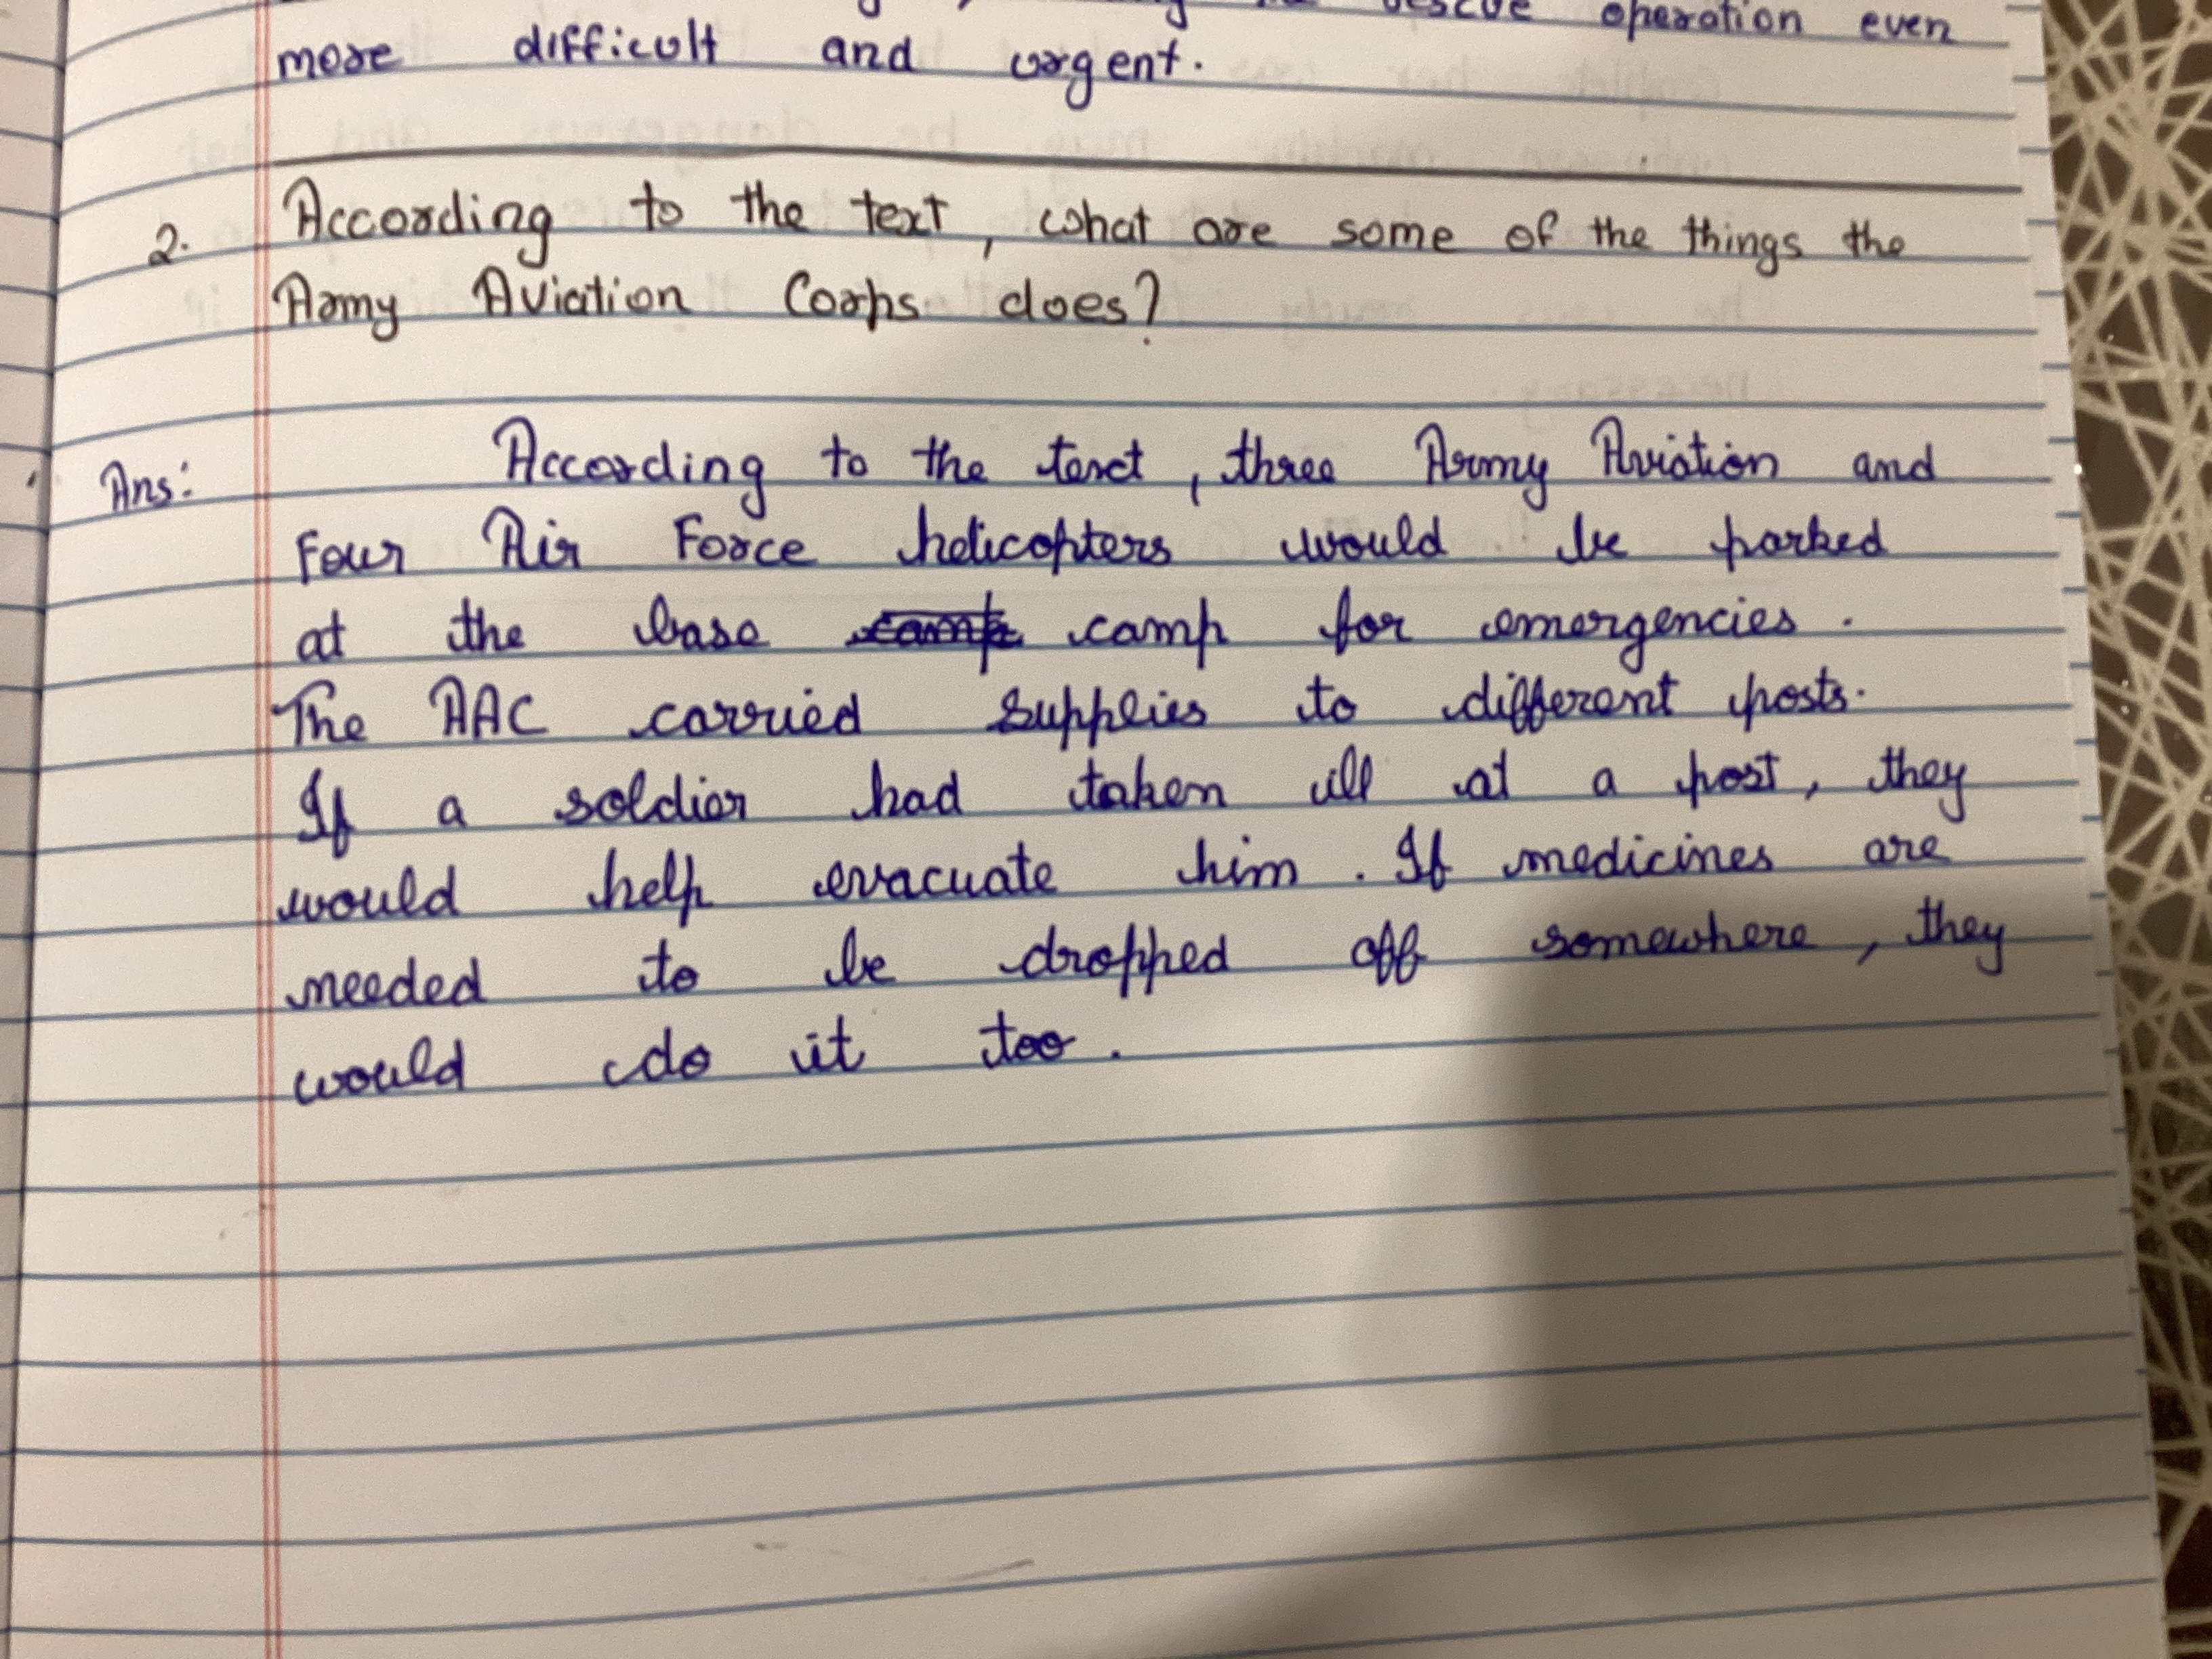 rescue operation even
more difficult and urgent.
2. According to the text, what are some of the things the
Army Aviation Corps does?
Ans: According to the text, three Army Aviation and
Four Air Force helicopters would be parked
at the base camp camp for emergencies.
The AAC carried supplies to different posts.
If a soldier had taken ill at a post, they
would help evacuate him. If medicines are
needed to be dropped off somewhere, they
would do it too.